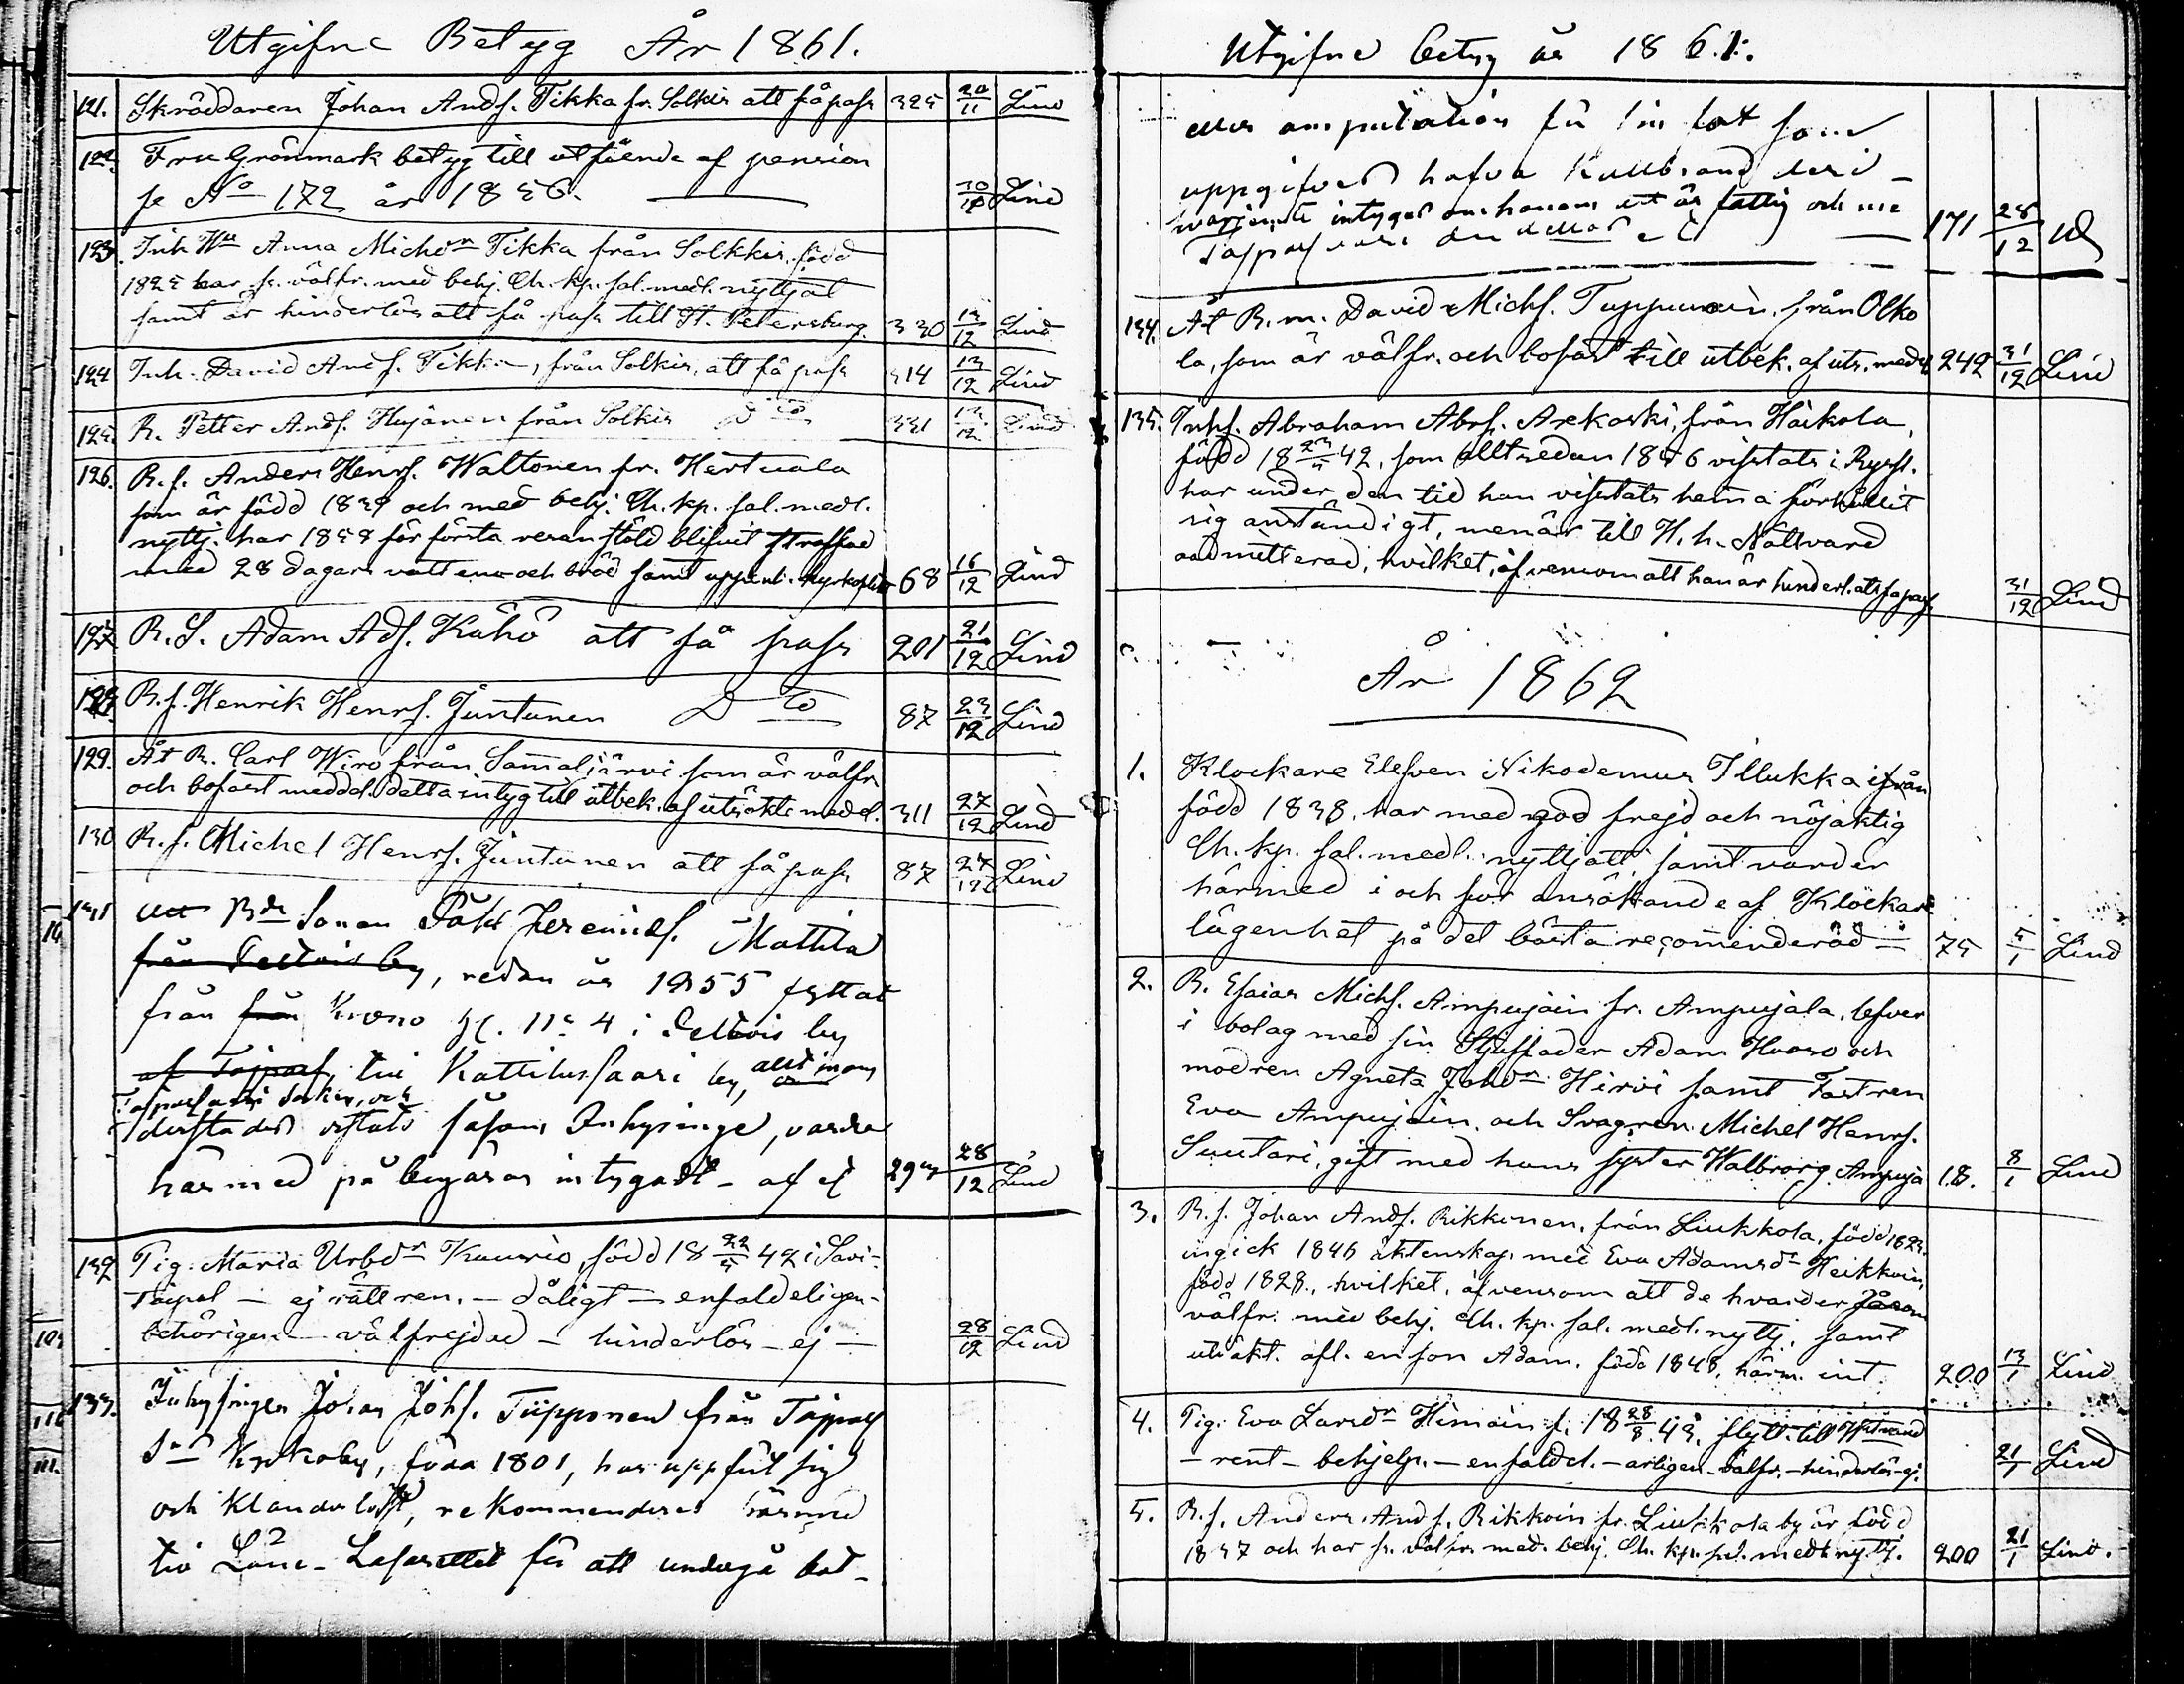 Utgifne Betyg År 1861.
121. Skräddaren Johan Andf. Tikka fr. Solkis att få pass 325 20/11 Lind
122. Fru Grönmark betyg till utfående af pension
se No 172 år 1856. Lind
123. Inh. Anna Michdr Tikka från Solkkis, född
1825 har fr. välfr. med behj. Ch. kp. sal. medl. nyttjat
samt är hinderlös att få pass till St. Petersburg. 330 13/12 Lind
124 Inh. David Andf. Tikka, från Solkis, att få pass 314 13/12 Lind
125. R. Petter Andf. Hujanen från Solkis Do 331 13/12 Lind
126. R.f. Anders Henrf. Waltonen fr. Hertuala
som är född 1839 och med behj. Ch. kp. sal. medl.
nyttj. har 1858 för första resan stöld blifvit straffad
med 28 dagars vatten och bröd samt uppenb. kyrkoplikt 68 16/12 Lind
127 R.S. Adam Adf. Kähö att få pass 201 21/12 Lind
128. R.f. Henrik Henrf. Juntunen Do 87 23/12 Lind
129. Åt R. Carl Wiro från Sammaljärvi som är välfr.
och bofast meddel. detta intyg till utbek. af utsökte medel. 311 27/12 Lind
130 R.f. Michel Henrf. Juntunen att få pass 87 27/12 Lind
131 att Bde Sonen Påhl Jeremiæf. Mattila
från by, redan år 1855 flyttat
från från Krono No 4 i by
af Taipals till Kattilussaari by, allt inom
Taipalsaari Socken, och
derstädes vistats såsom Inhysinge, varder
härmed på begäran intygadt - af ej 28/12 Lind
132 Pig. Maria Urbdr Kaurio, född 18 22/5 42 i Savi-
Taipal - ej rätt ren. - dåligt - enfaldeligen -
behörigen - välfrejdad - hinderlös - ej - 28/12 Lind
133. Inhysingen Johan Johf. Tiipponen från Taipals
Sn Kyrkoby, född 1801, har uppfört sig
och klanderlöst, rekommenderas härmed
till Läne-Lasarettet för att undergå bot-
Utgifne betyg år 1861.
eller amputation för sin fot som
uppgifves hafva Kallbrand deri -
hvarjemte intygas om honom att är fattig och me
171 28/12
134. Åt R.m. David Michf. Tuppurain, från Olko
la, som är välfr. och bofast till utbek. af uts. medel 242 31/12 Lind
135. Inhf. Abraham Abrf. Arekoski, från Haikola,
född 18 23/5 42, som alltsedan 1846 vistats i Ryssl.
har under den tid han vistats hema förhållit
sig anständigt, men är till H. h. Nattvard
admitterad, hvilket, äfvensom att han är hinderl. att få pass. 31/12 Lind
År 1862
1. Klockare Elefven Nikodemus Illukka ifrån
född 1838, har med god frejd och nöjaktig
Ch. kp. sal. medl. nyttjat, samt varder
härmed i och för ansökande af Klockare
lägenhet på det bästa recomenderad - 75 5/1 Lind
2. R. Esaias Michf. Ampujain fr. Ampujala, lefver
i bolag med sin Stjuffader Adam Huoso och
modren Agneta Johdr Hirvi samt Fastren
Eva Ampujain, och Svagren Michel Henrf.
Suutari, gift med hans syster Walborg Ampuja 18. 8/1 Lind
3. R.f. Johan Andf. Rikkonen, från Liukkola, född 1823.
ingick 1846 äktenskap med Eva Adamsdr Heikkoin,
född 1828, hvilket, äfvensom att de hvarder såsom
välfr. med behj. Ch. kp. sal. medl. nyttj. samt
i äkt. afl. en son Adam, född 1848, härm. int. 200 13/1 Lind
4. Pig. Eva Larsdr Himain f. 18 28/8 43. flytt. till
- rent - behjelp. - enfaldel. - arligen - välfr. - hinderlös - ej. 21/1 Lind
5. R.f. Anders Andf. Rikkoin fr. Liukkola by är född
1837 och har fr. välfr. med. behj. Ch. kp. sal. medl. nyttj. 200 21/1 Lind.